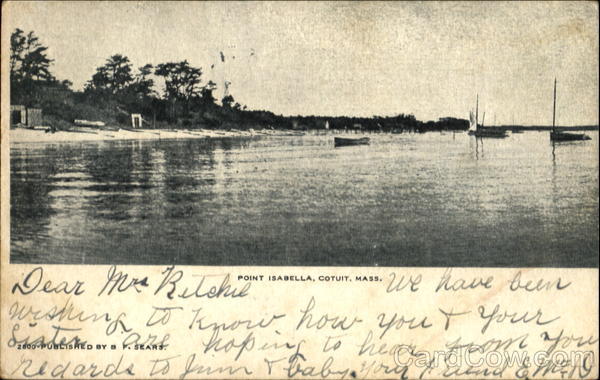 POINT ISABELLA, COTUIT, MASS.
Dear Mrs Ritchie We have been
wishing to Know how you & your
Sister are hoping to hear from you
2800-PUBLISHED BY B. F. SEARS.
regards to & baby. Your friend
CardCow.com